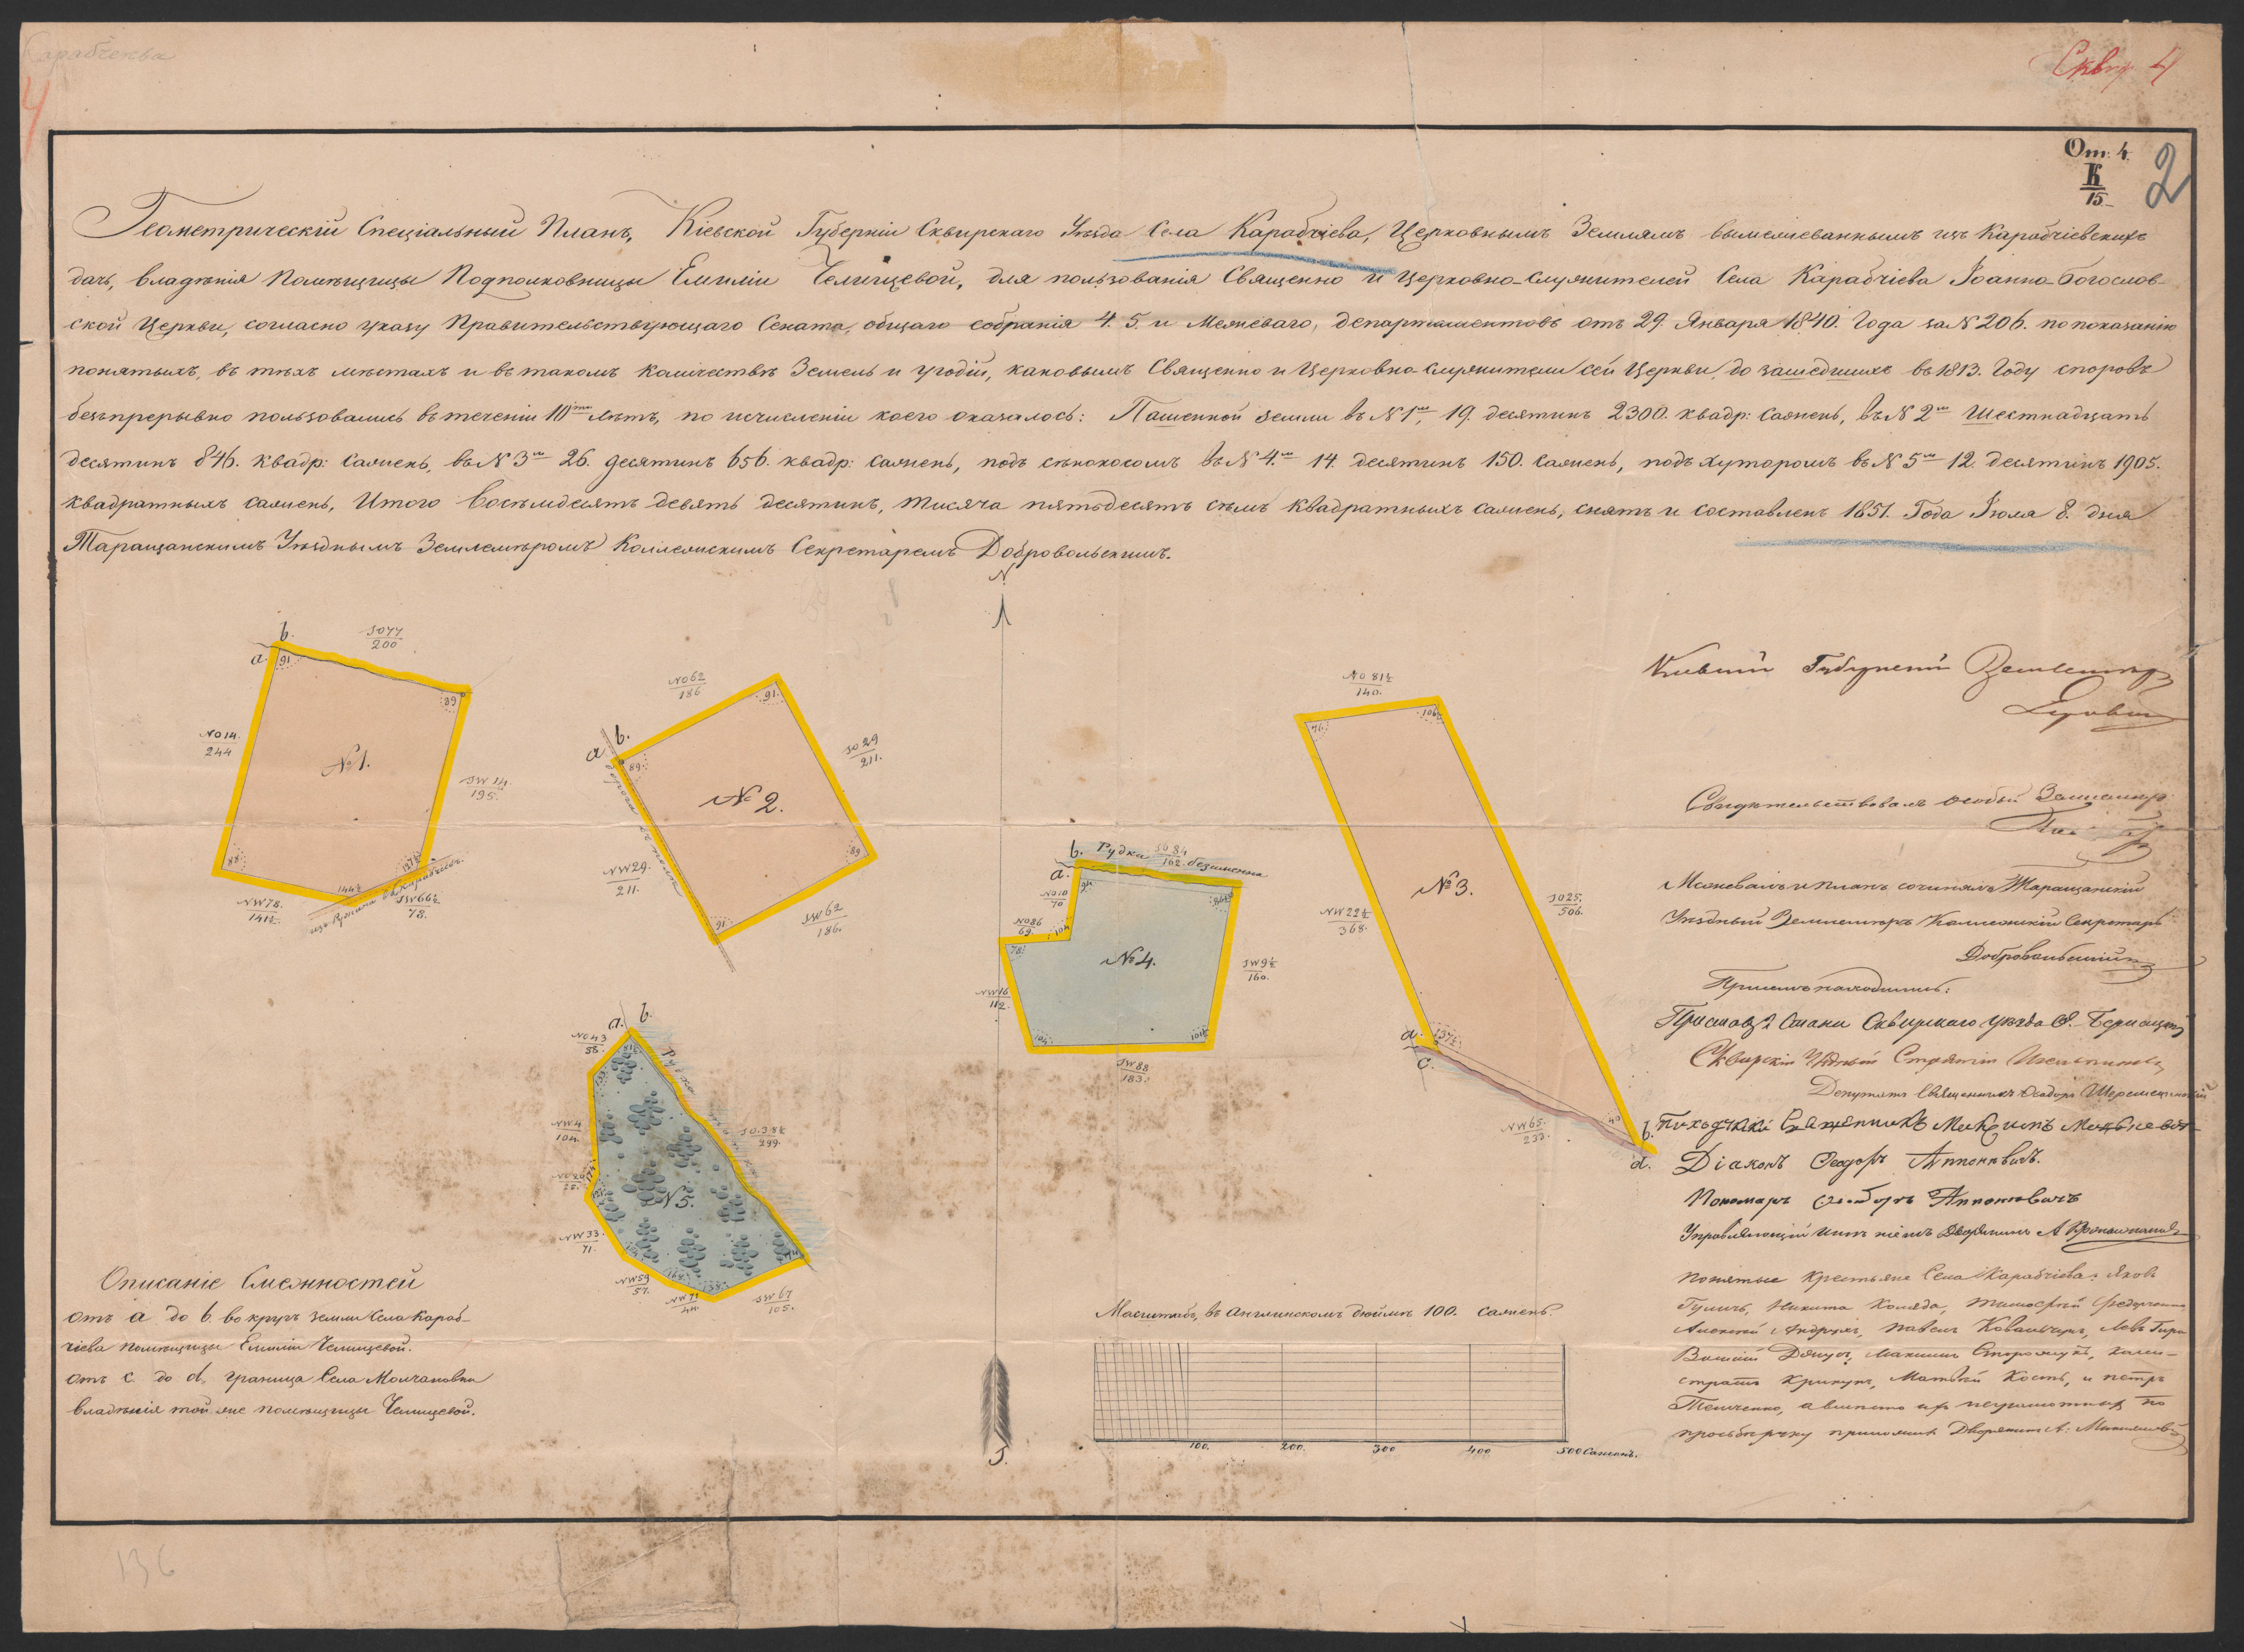 Карабчіева
Сквир. 4
4
От: 4.
К
15
2
Геометрическій Спеціальный Планъ, Кіевской Губерніи Сквирскаго Уѣзда Села Карабчіева, Церковнымъ Землямъ вымежеваннымъ изъ Карабчіевскихъ
дачъ, владѣнія Помѣщицы Подполковницы Емиліи Челищевой, для пользованія Священно и Церковно-служителей Села Карабчіева Іоанно-Богослов-
ской Церкви, согласно указу Правительствующаго Сената, общаго собранія 4. 5. и Межеваго, департаментовъ отъ 29. Января 1840. Года за N 206. по показанію
понятыхъ, въ тѣхъ мѣстахъ и въ такомъ количествѣ Земель и угодій, каковымъ Священно и Церковно служители сей Церкви, до зашедшихъ въ 1813. Году споровъ
безпрерывно пользовались въ теченіи 10ти лѣтъ, по исчисленіи коего оказалось: Пашенной земли въ N 1мъ, 19. десятинъ 2300. квадр: Саженъ, въ N 2мъ Шестнадцать
десятинъ 846. квадр: Саженъ, въ N 3мъ 26. десятинъ 656. квадр: Саженъ, подъ сѣнокосомъ въ N 4.мъ 14. десятинъ 150. Саженъ, подъ хуторомъ въ N 5мъ 12. десятинъ 1905.
квадратныхъ саженъ, Итого Восемьдесятъ девять десятинъ, тысяча пятьдесятъ семь квадратныхъ саженъ, снятъ и составленъ 1851. Года Іюля 8. дня
Таращанскимъ Уѣзднымъ Землемѣромъ Коллежскимъ Секретаремъ Добровольскимъ.
N
b.
a.
SO 77
200
91
89
NO 14.
244
№ 1.
SW 14.
195.
88
144½
127½
NW 78.
141½.
SW 66½
78.
изъ Ружина въ Карабчіевъ.
NO 62
186
a. b.
89.
91.
SO 29
211.
№ 2.
дорога въ поле
NW 29.
211.
89
91
SW 62
186.
b. Рудка SO 84
162. безименна
a.
NO 10
70
NO 86
69.
104
78.
№ 4.
SW 9½
160.
NW 16
112.
104
101½
SW 88
183.
NO 81½
140.
76.
106½
№ 3.
SO 25.
506.
NW 22½
368.
a.
c.
137½
40
NW 65.
233.
b.
d.
a. b.
NO 43
58.
Рудка
NW 4
104.
SO. 38½
299.
№ 5.
NW 33.
71.
NW 59
57.
NW 71
44.
SW 67
105.
Кіевскій Губернскій Землемѣръ
Свидѣтельствовалъ особый Землемѣръ
Межевалъ и планъ сочинялъ Таращанскій
Уѣздный Землемѣръ Коллежскій Секретарь
Добровольскій
При семъ находились:
Приставъ 2 Стана Сквирскаго уѣзда
Сквирскій Уѣздный Стряпчій
Депутатъ Священникъ Ѳеодоръ
Діаконъ Ѳеодоръ
Пономарь
Управляющій имѣніемъ Дворянинъ А
Понятые крестьяне Села Карабчіева: Яковъ
Гуличъ, Никита Коляда, Тимофѣй Федорченко
Алексѣй Андрущ, Павелъ Ковальчукъ, Левъ Гира
Василій Дячукъ, Максимъ Сторожукъ, Кали-
стратъ Крикунъ, Матвѣй Кость, и петръ
а вмѣсто ихъ неграмотныхъ по
просьбѣ руку приложилъ Дворянинъ А:
Описаніе Смежностей
отъ a до b. вокругъ земли Села Караб-
чіева помѣщицы Емиліи Челищевой.
отъ c. до d, граница Села Молчановки
владѣнія той же помѣщицы Челищевой.
Масштабъ, въ англинскомъ дюймѣ 100. саженъ.
100. 200. 300 400 500 Саженъ.
S.
136